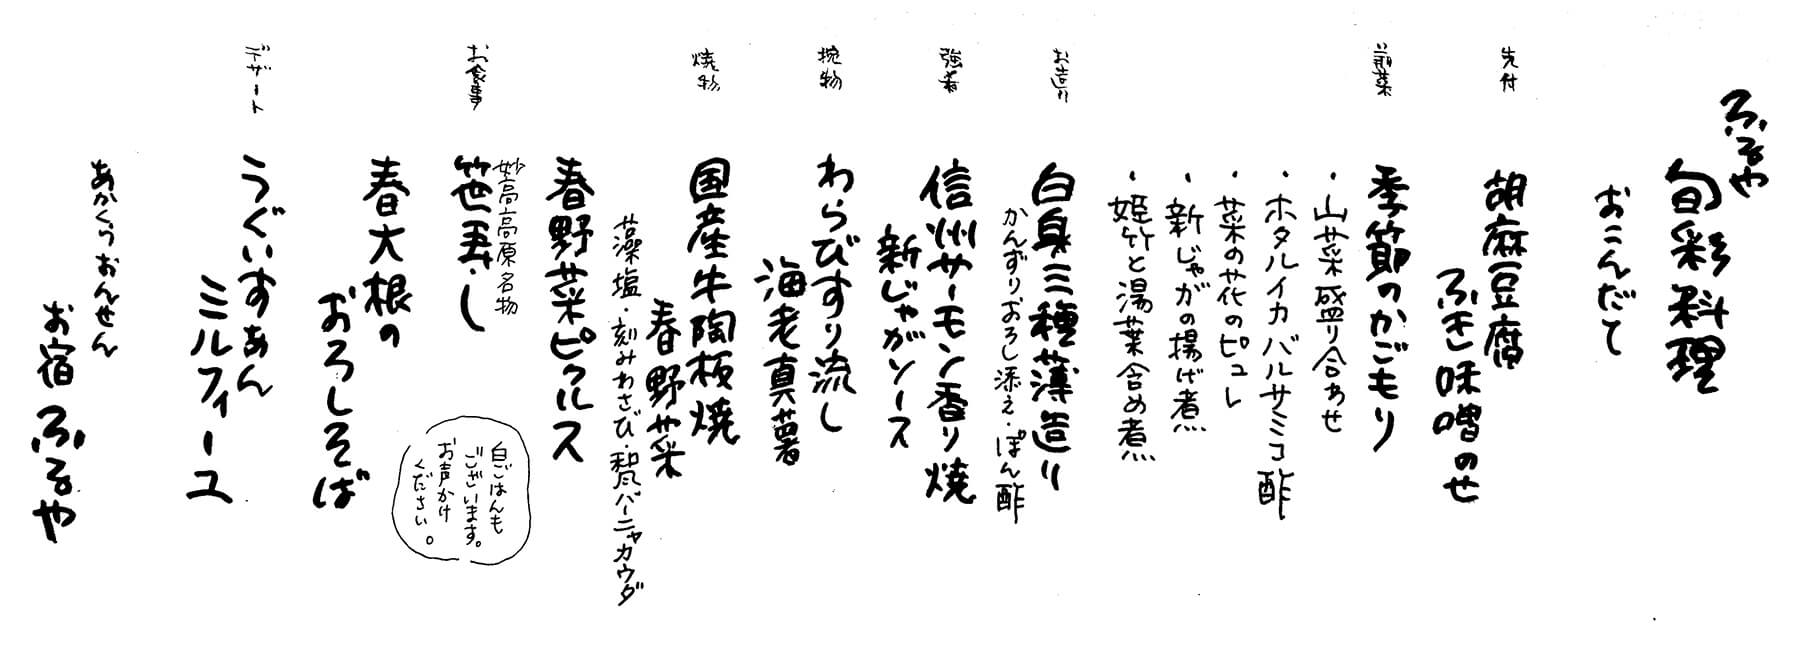 ふるや
旬彩料理
おこんだて
先付
胡麻豆腐
ふき味噌のせ
前菜
季節のかごもり
・山菜盛り合わせ
・ホタルイカバルサミコ酢
・菜の花のピュレ
・新じゃがの揚げ煮
・姫竹と湯葉含め煮
お造り
白身三種薄造り
かんずりおろし添え・ぽん酢
強肴
信州サーモン香り焼
新じゃがソース
椀物
わらびすり流し
海老真薯
焼物
国産牛陶板焼
春野菜
藻塩・刻みわさび・和風バーニャカウダ
春野菜ピクルス
お食事
妙高高原名物
笹寿し
春大根の
おろしそば
白ごはんも
ございます。
お声かけ
ください。
デザート
うぐいすあん
ミルフィーユ
あかくらおんせん
お宿 ふるや